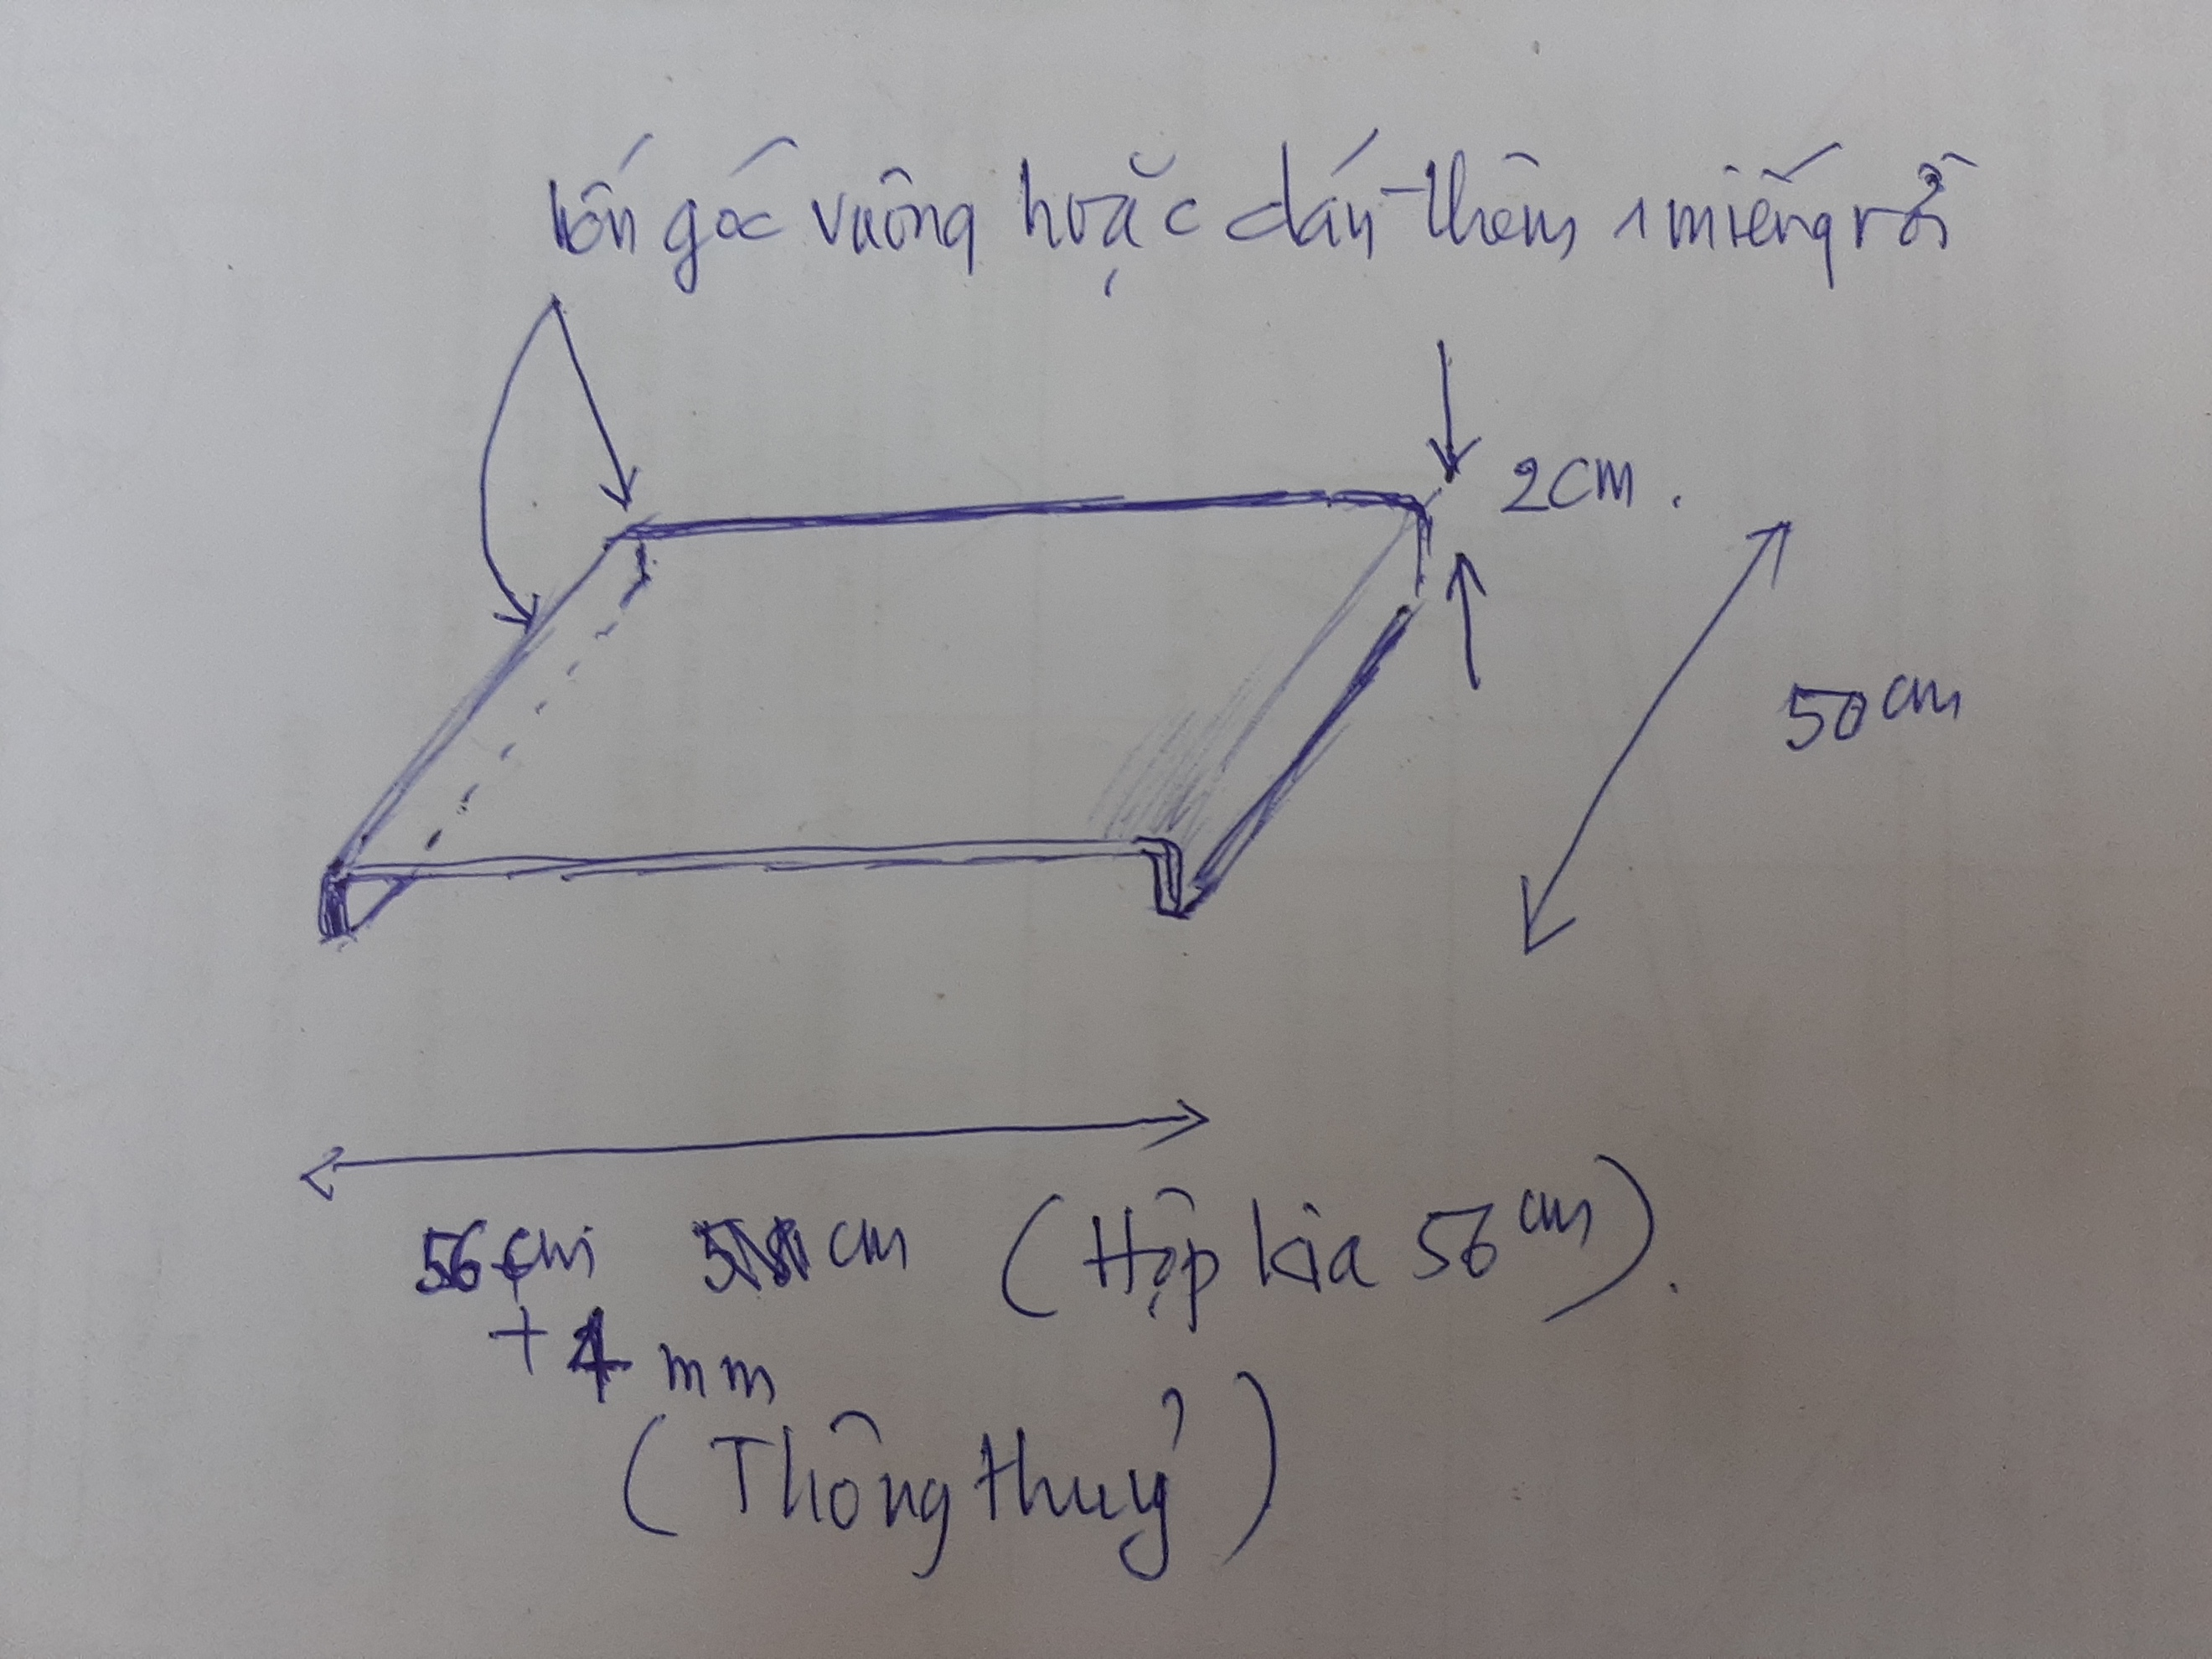 uốn góc vuông hoặc dán thêm 1 miếng rồi
2cm.
50cm
56cm cm (Hộp kia 56cm).
+4mm
(Thông thuỷ)